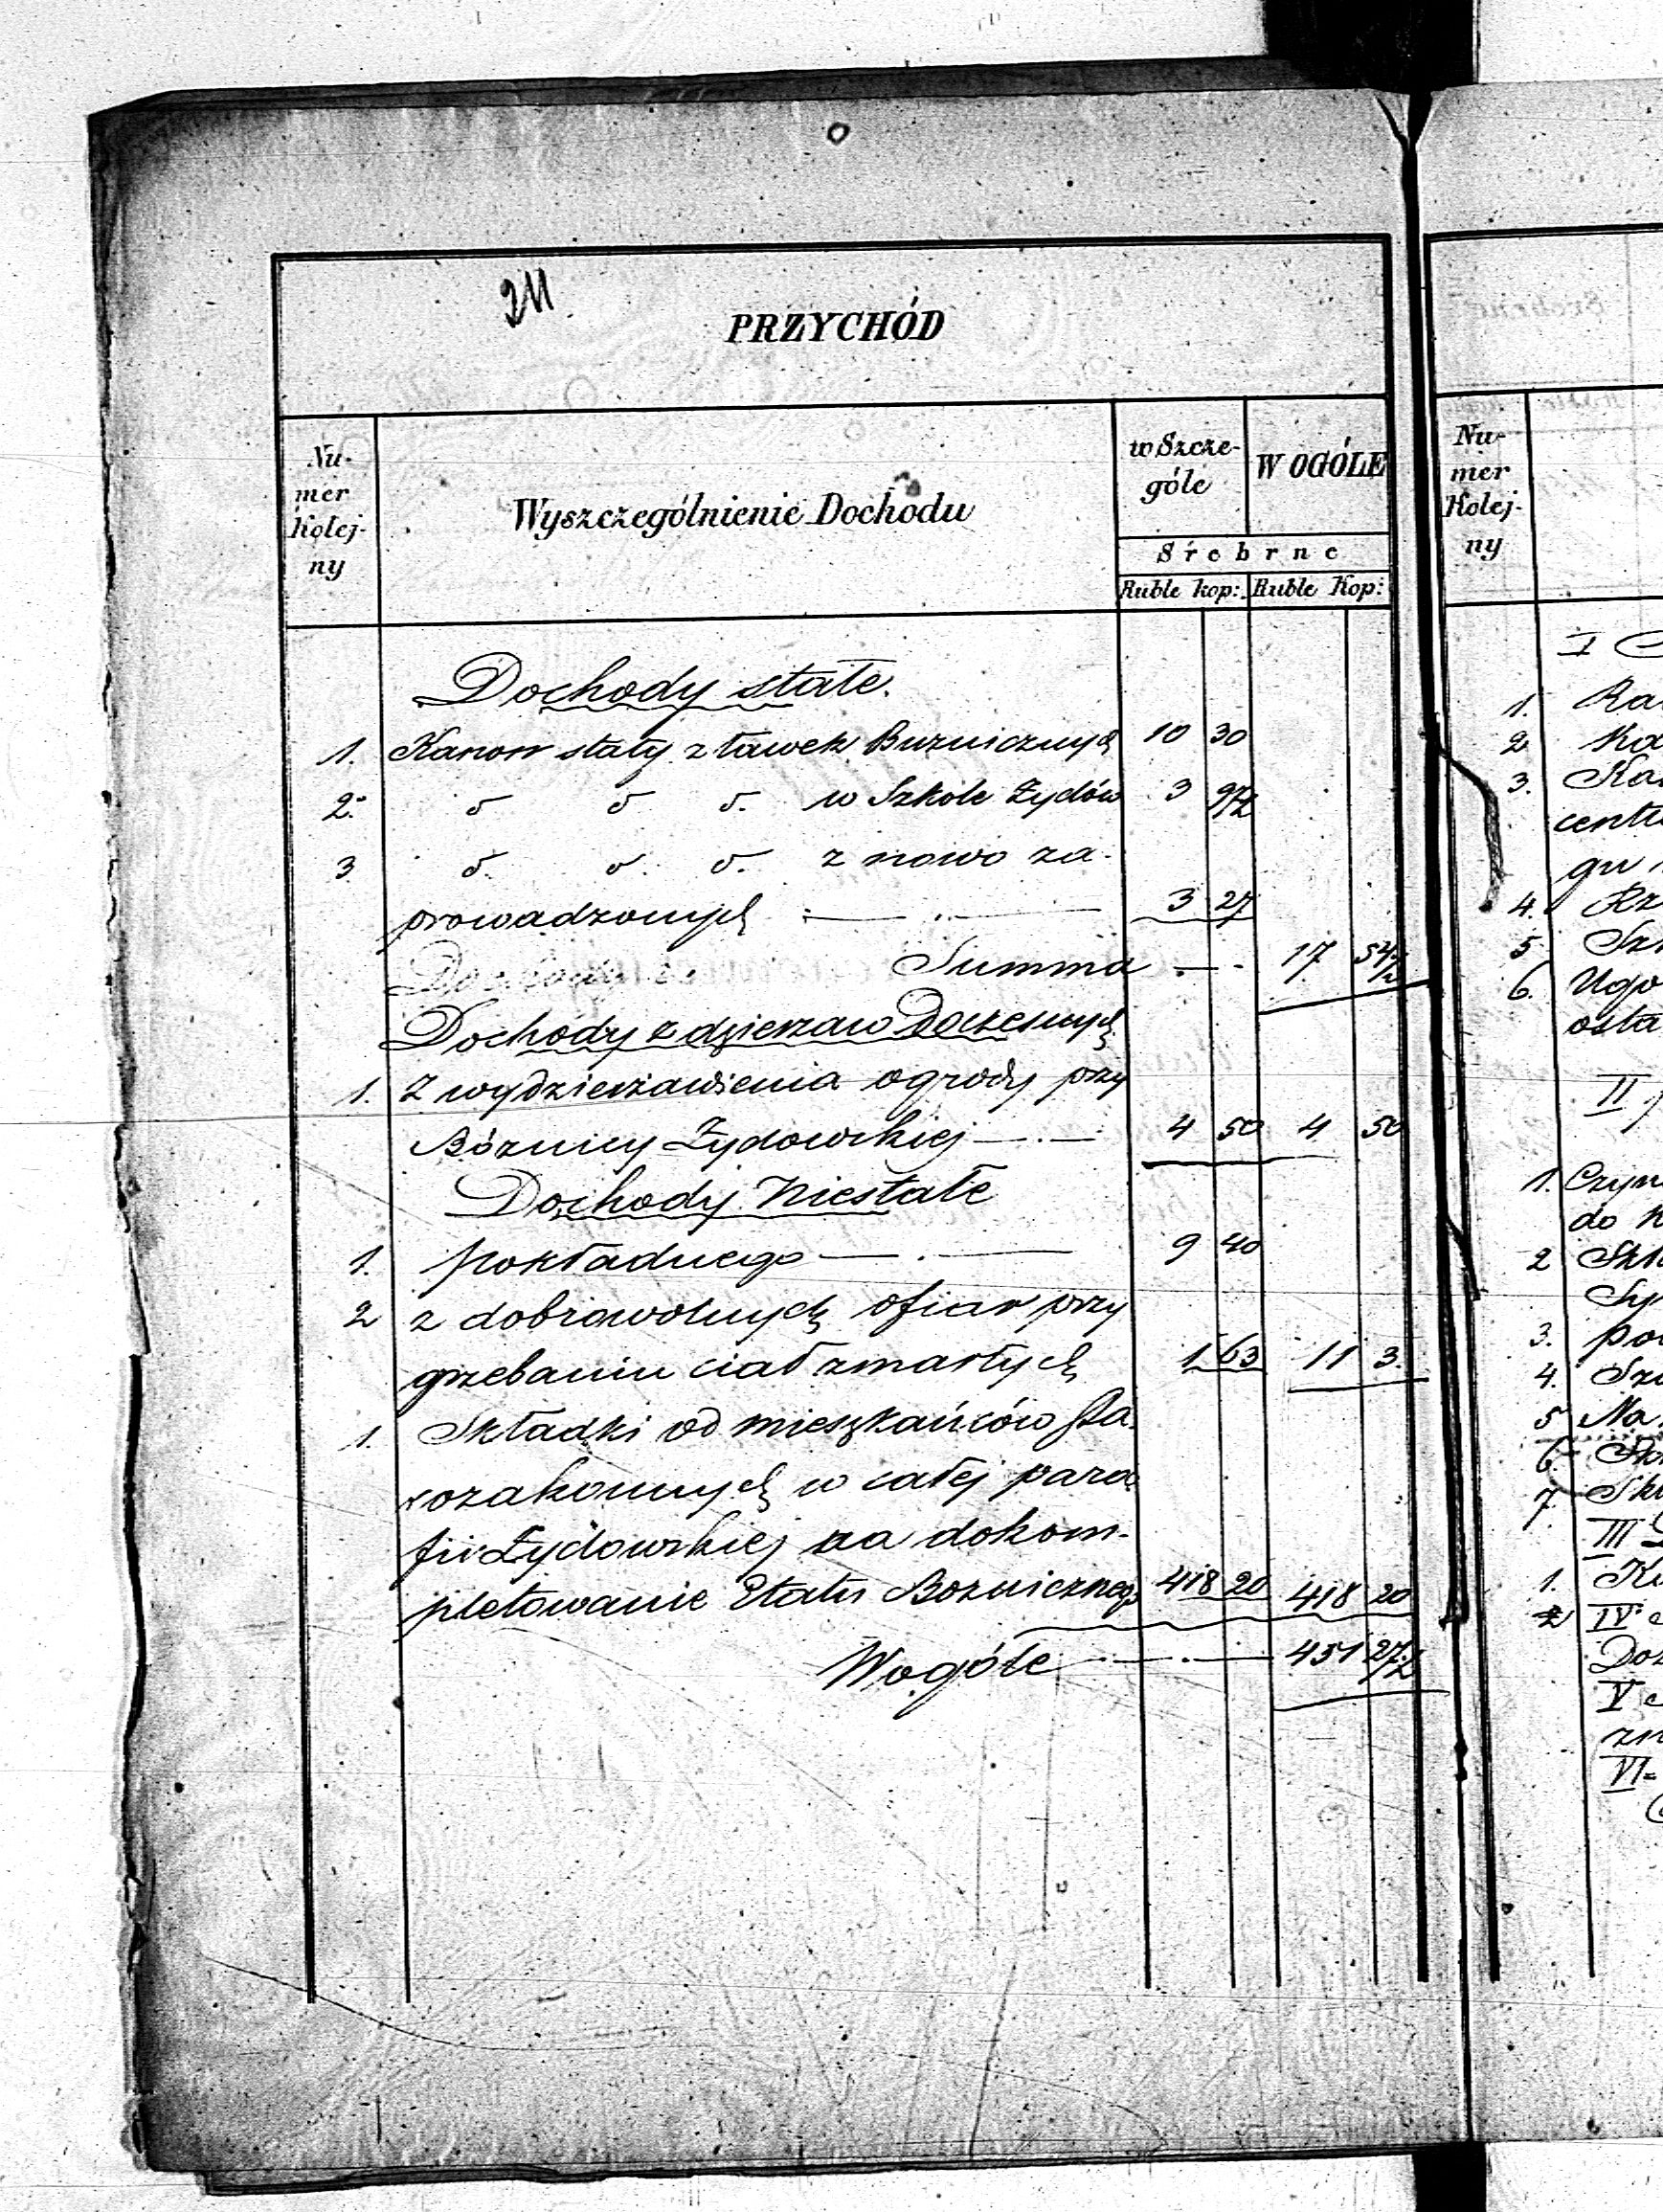 211
PRZYCHÓD
Nu-
mer
Kolej-
ny
Wyszczególnienie Dochodu
w Szcze-
góle
W OGÓLE
Śrebrne
Ruble kop: Ruble Kop:
Dochody stałe.
1. Kanon stały z ławek Buzniczných 10 30
2. " " " w Szkole Żydów 3 97½
3 " " " z nowo za-
prowadzonych 3 27
Summa 17 54½
Dochody z dzierżaw Doczesnych
1. Z wydzierżawienia ogrody przy
Bóznicy Żydowskiej 4 50 4 50
Dochody Niestałe
1. pokładnego 9 40
2 z dobrowolnych ofiar przy
grzebaniu ciał zmarłych 1 63 11 3.
1. Składki od mieszkańców Sta
rozakonnych w całej para
fii Żydowskiej na dokom-
pletowanie Etatu Bozniczneg 418 20 418 20
Wogóle 451 27½
Nu-
mer
Kolej-
ny
I
1.
2
3.
centu
4. Rz
5
6. Ugo
osta
II
1. Czyn
do
2
3. pou
4.
5 Na
6
7.
III
1.
2 IV
V
VI